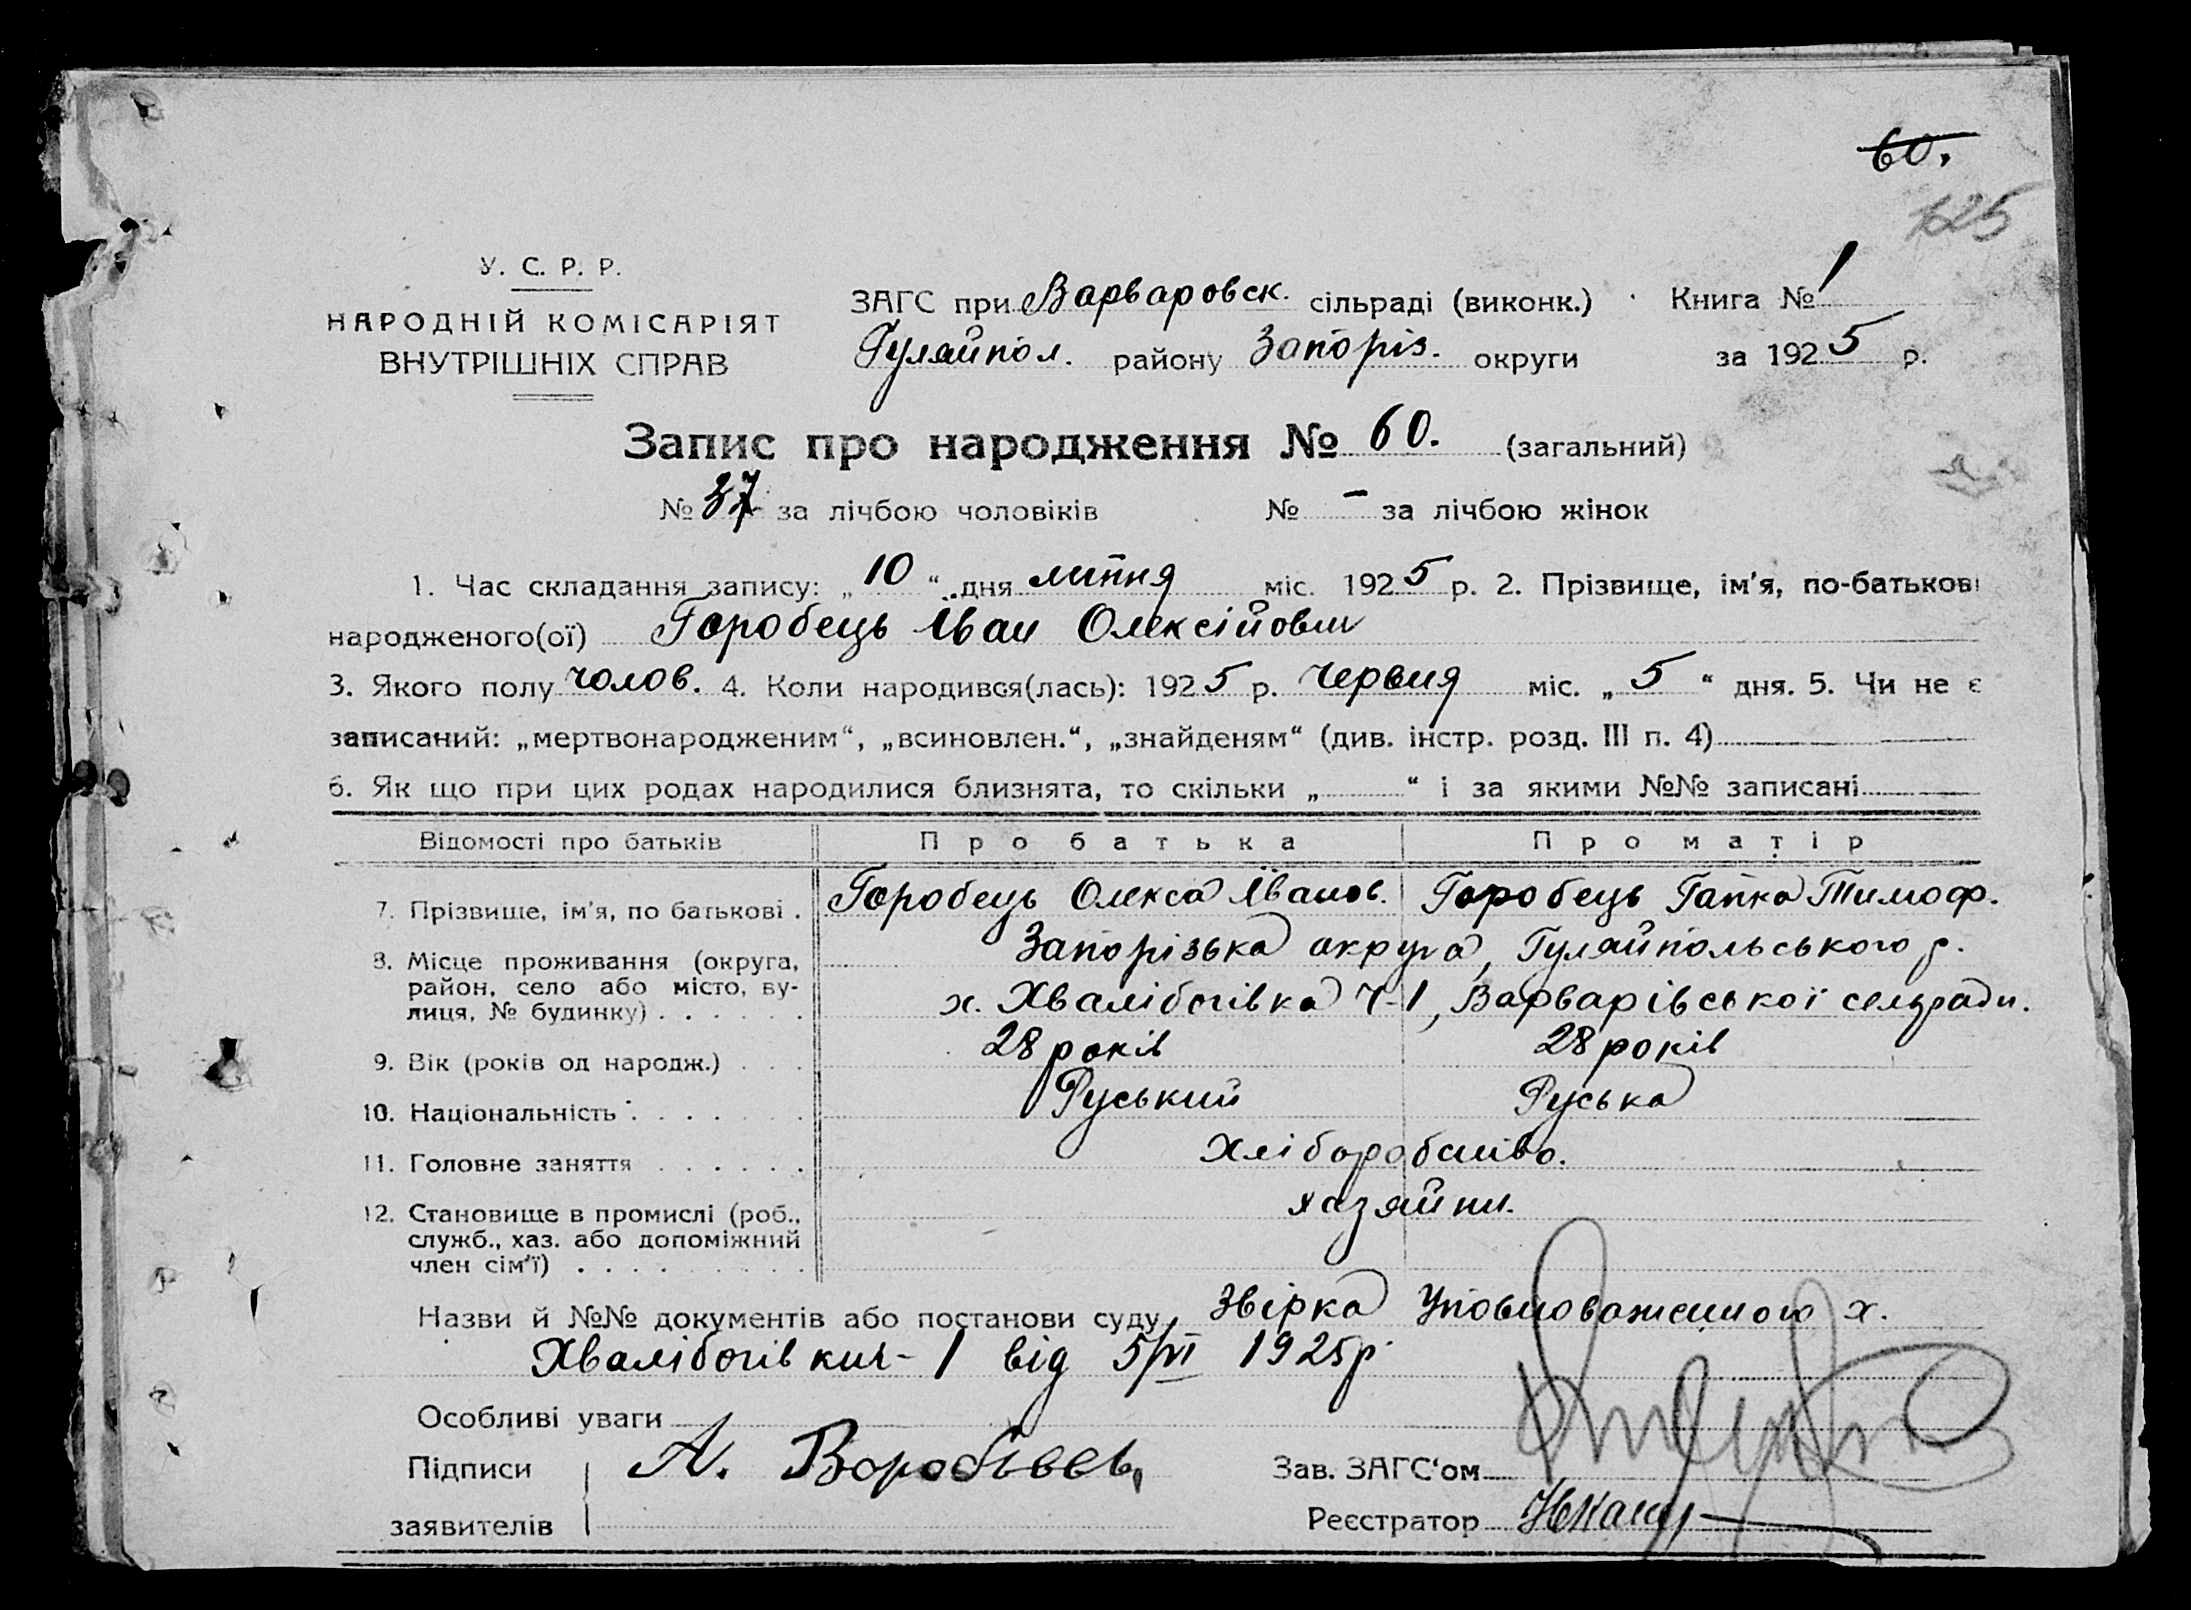 60.
125
У. С. Р. Р.
НАРОДНІЙ КОМІСАРІЯТ
ВНУТРІШНІХ СПРАВ
ЗАГС при Варваровск. сільраді (виконк.) Книга № 1
Гуляйпол. району Запоріз. округи за 1925 р.
Запис про народження № 60. (загальний)
№ 37 за лічбою чоловіків № – за лічбою жінок
1. Час складання запису: „10“ дня липня міс. 1925 р. 2. Прізвище, ім'я, по-батькові
народженого(ої) Горобець Іван Олексійович
3. Якого полу чолов. 4. Коли народився(лась): 1925 р. червня міс. „5“ дня. 5. Чи не є
записаний: „мертвонародженим“, „всиновлен.“, „знайденям“ (див. інстр. розд. III п. 4)
6. Як що при цих родах народилися близнята, то скільки „ “ і за якими №№ записані
Відомості про батьків Про батька Про матір
7. Прізвище, ім'я, по батькові . Горобець Олекса Іванов. Горобець Гапка Тимоф.
8. Місце проживання (округа, Запорізька округа, Гуляйпольського р.
район, село або місто, ву-
лиця, № будинку) . . . . . . х. Хвалібогівка Ч-1, Варварівської сельради.
9. Вік (років од народж.) . . . 28 років 28 років
10. Національність . . . . . . Руський Руська
11. Головне заняття . . . . . . Хліборобство.
12. Становище в промислі (роб., хазяйни.
служб., хаз. або допоміжний
член сім'ї) . . . . . . . . .
Назви й №№ документів або постанови суду Звірка Уповноваженного х.
Хвалібогівкич-1 від 5/VI 1925р.
Особливі уваги
Підписи А. Воробьевъ Зав. ЗАГС‘ом
заявителів Реєстратор